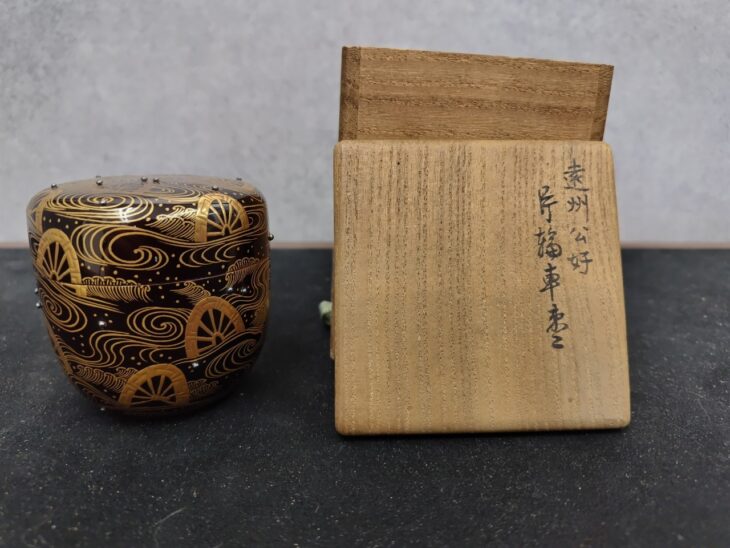 遠州公好
片輪車棗